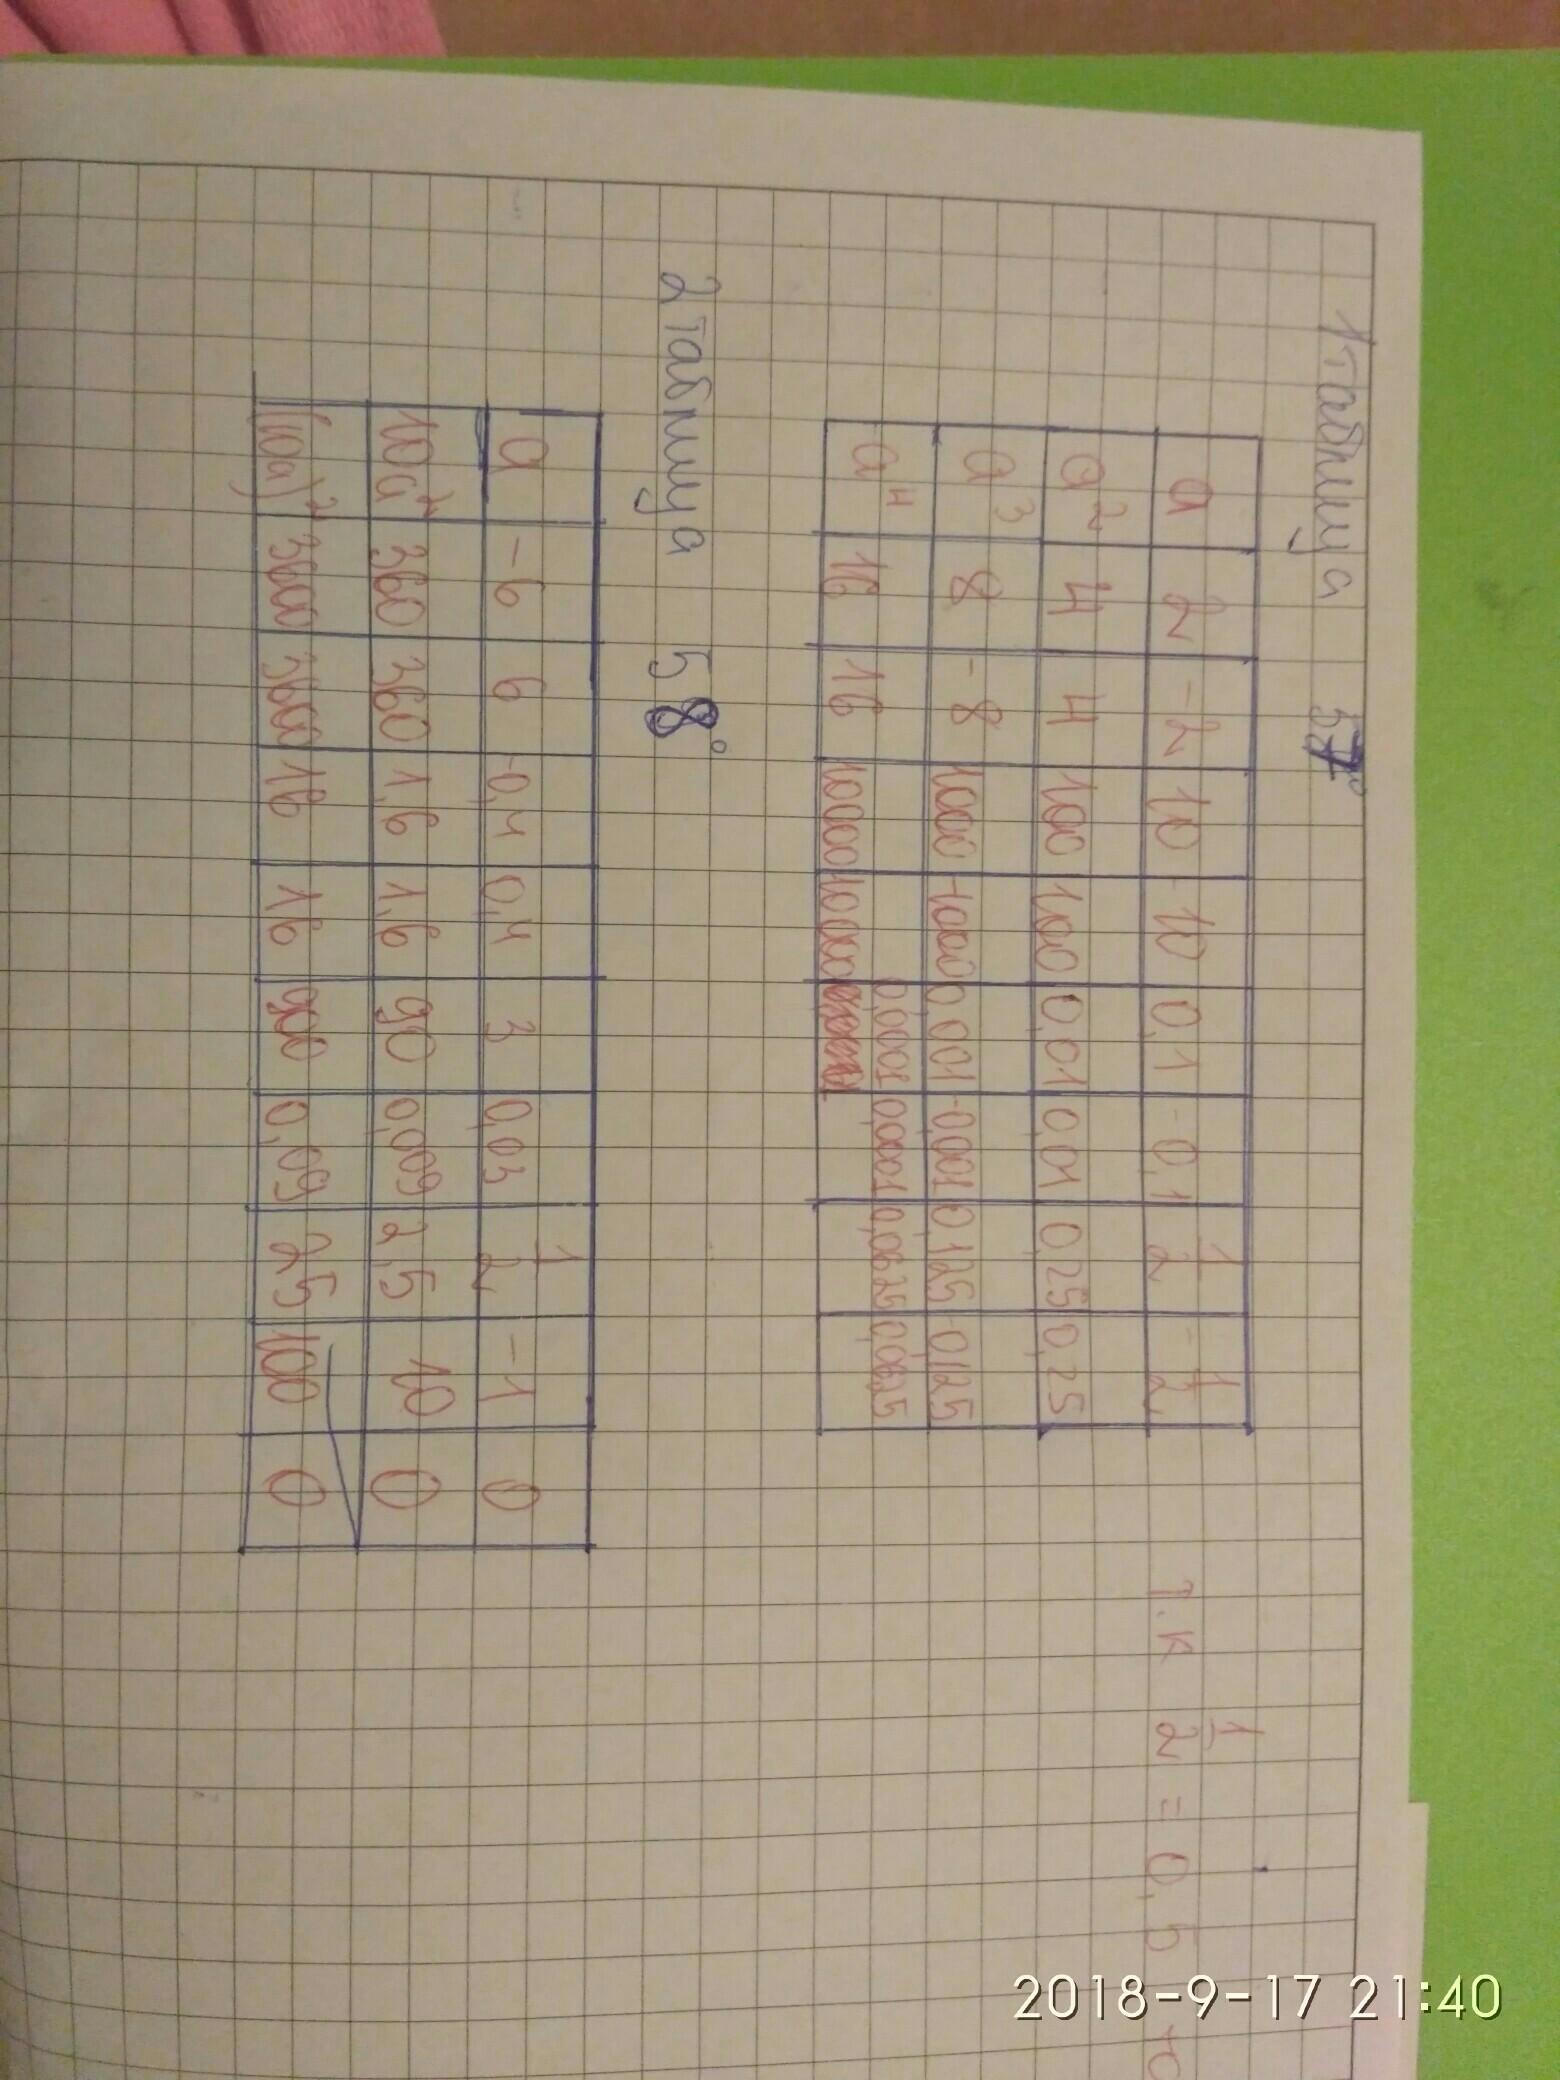 1 таблица 57°
a 2 -2 10 -10 0,1 -0,1 1/2 -1/2
a² 4 4 100 100 0,01 0,01 0,25 0,25
a³ 8 -8 1000 -1000 0,001 -0,001 0,125 -0,125
a⁴ 16 16 10000 10000 0,0001 0,0001 0,0625 0,0625
т.к 1/2 = 0,5
2 таблица 58°
a -6 6 -0,4 0,4 3 0,03 1/2 -1 0
10a² 360 360 1,6 1,6 90 0,009 2,5 10 0
(10a)² 3600 3600 16 16 900 0,09 25 100 0
2018-9-17 21:40